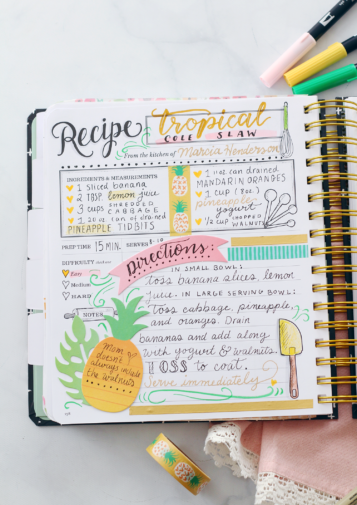 Recipe tropical
COLE SLAW
From the kitchen of Marcia Henderson
INGREDIENTS & MEASUREMENTS
1 sliced banana
2 TBSP. lemon juice
3 cups SHREDDED CABBAGE
1 20 oz. can of drained
PINEAPPLE TIDBITS
1 11oz can drained
MANDARIN ORANGES
1 cup (8oz.)
pineapple
yogurt
1/2 cup CHOPPED WALNUTS
PREP TIME 15 MIN. SERVES 8-10
DIFFICULTY
Easy
Medium
HARD
NOTES
Mom
doesn't
always include
the walnuts
Directions:
IN SMALL BOWL:
toss banana slices, lemon
juice. IN LARGE SERVING BOWL:
toss cabbage, pineapple,
and oranges. Drain
bananas and add along
with yogurt & walnuts.
TOSS to coat.
Serve immediately